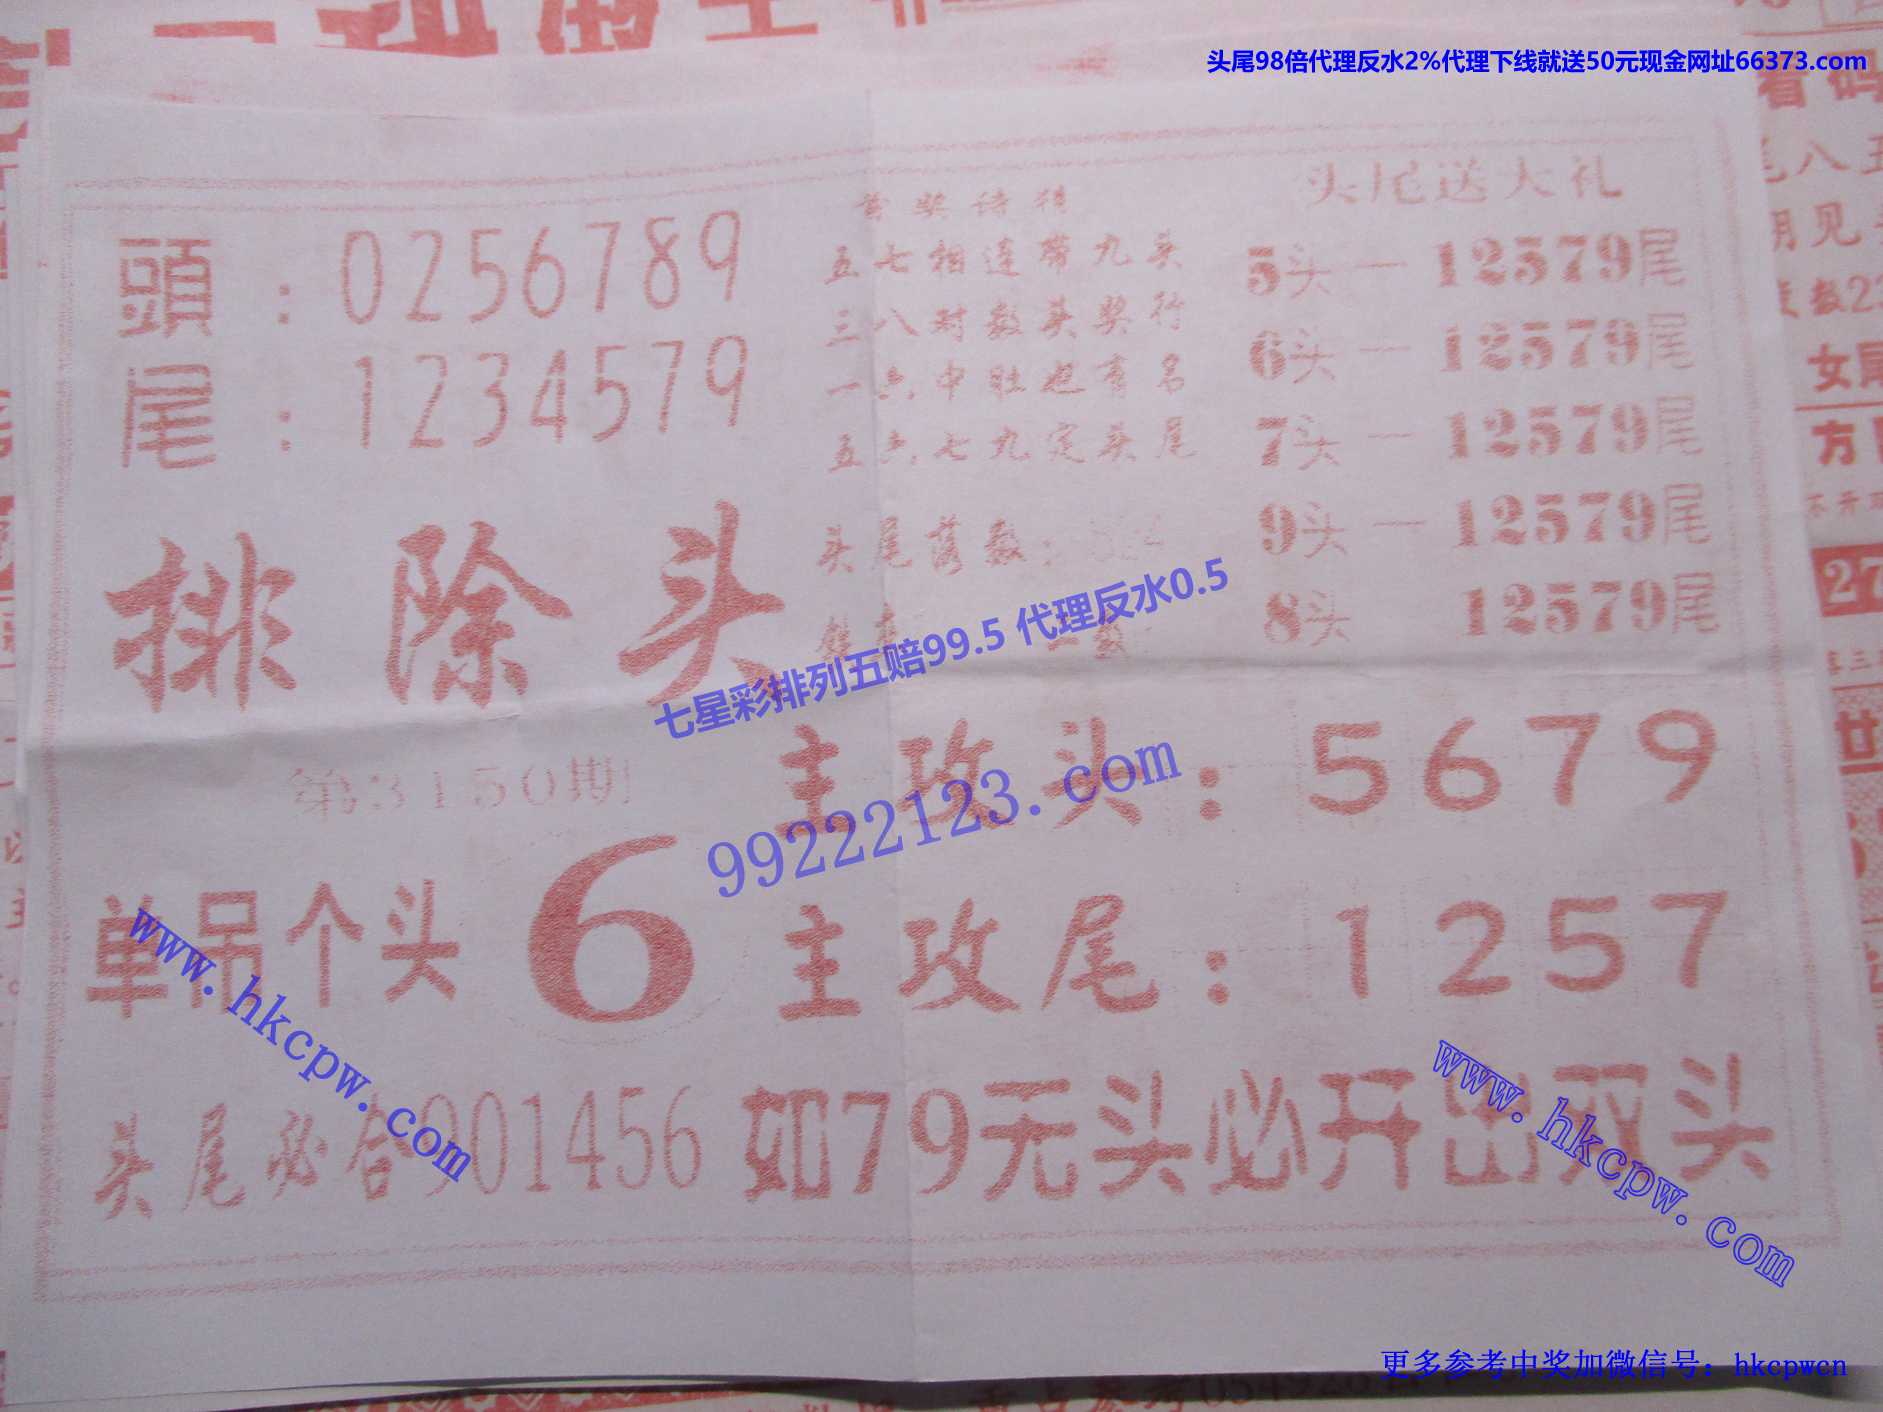 头尾98倍代理反水2%代理下线就送50元现金网址66373.com
頭：0256789
尾：1234579
首奖诗猜
五七相连带九头
三八对数头奖行
一六中肚也有名
五六七九定头尾
头尾落数：
头尾送大礼
5头一12579尾
6头一12579尾
7头一12579尾
9头一12579尾
8头 12579尾
排除头
七星彩排列五赔99.5 代理反水0.5
99222123.com
第3150期
单吊个头 6
主攻头：5679
主攻尾：1257
头尾必合901456 如79无头必开出双头
www.hkcpw.com
www.hkcpw.com
更多参考中奖加微信号：hkcpwcn
看码
八五
见
数22
女尾
方
不开
27